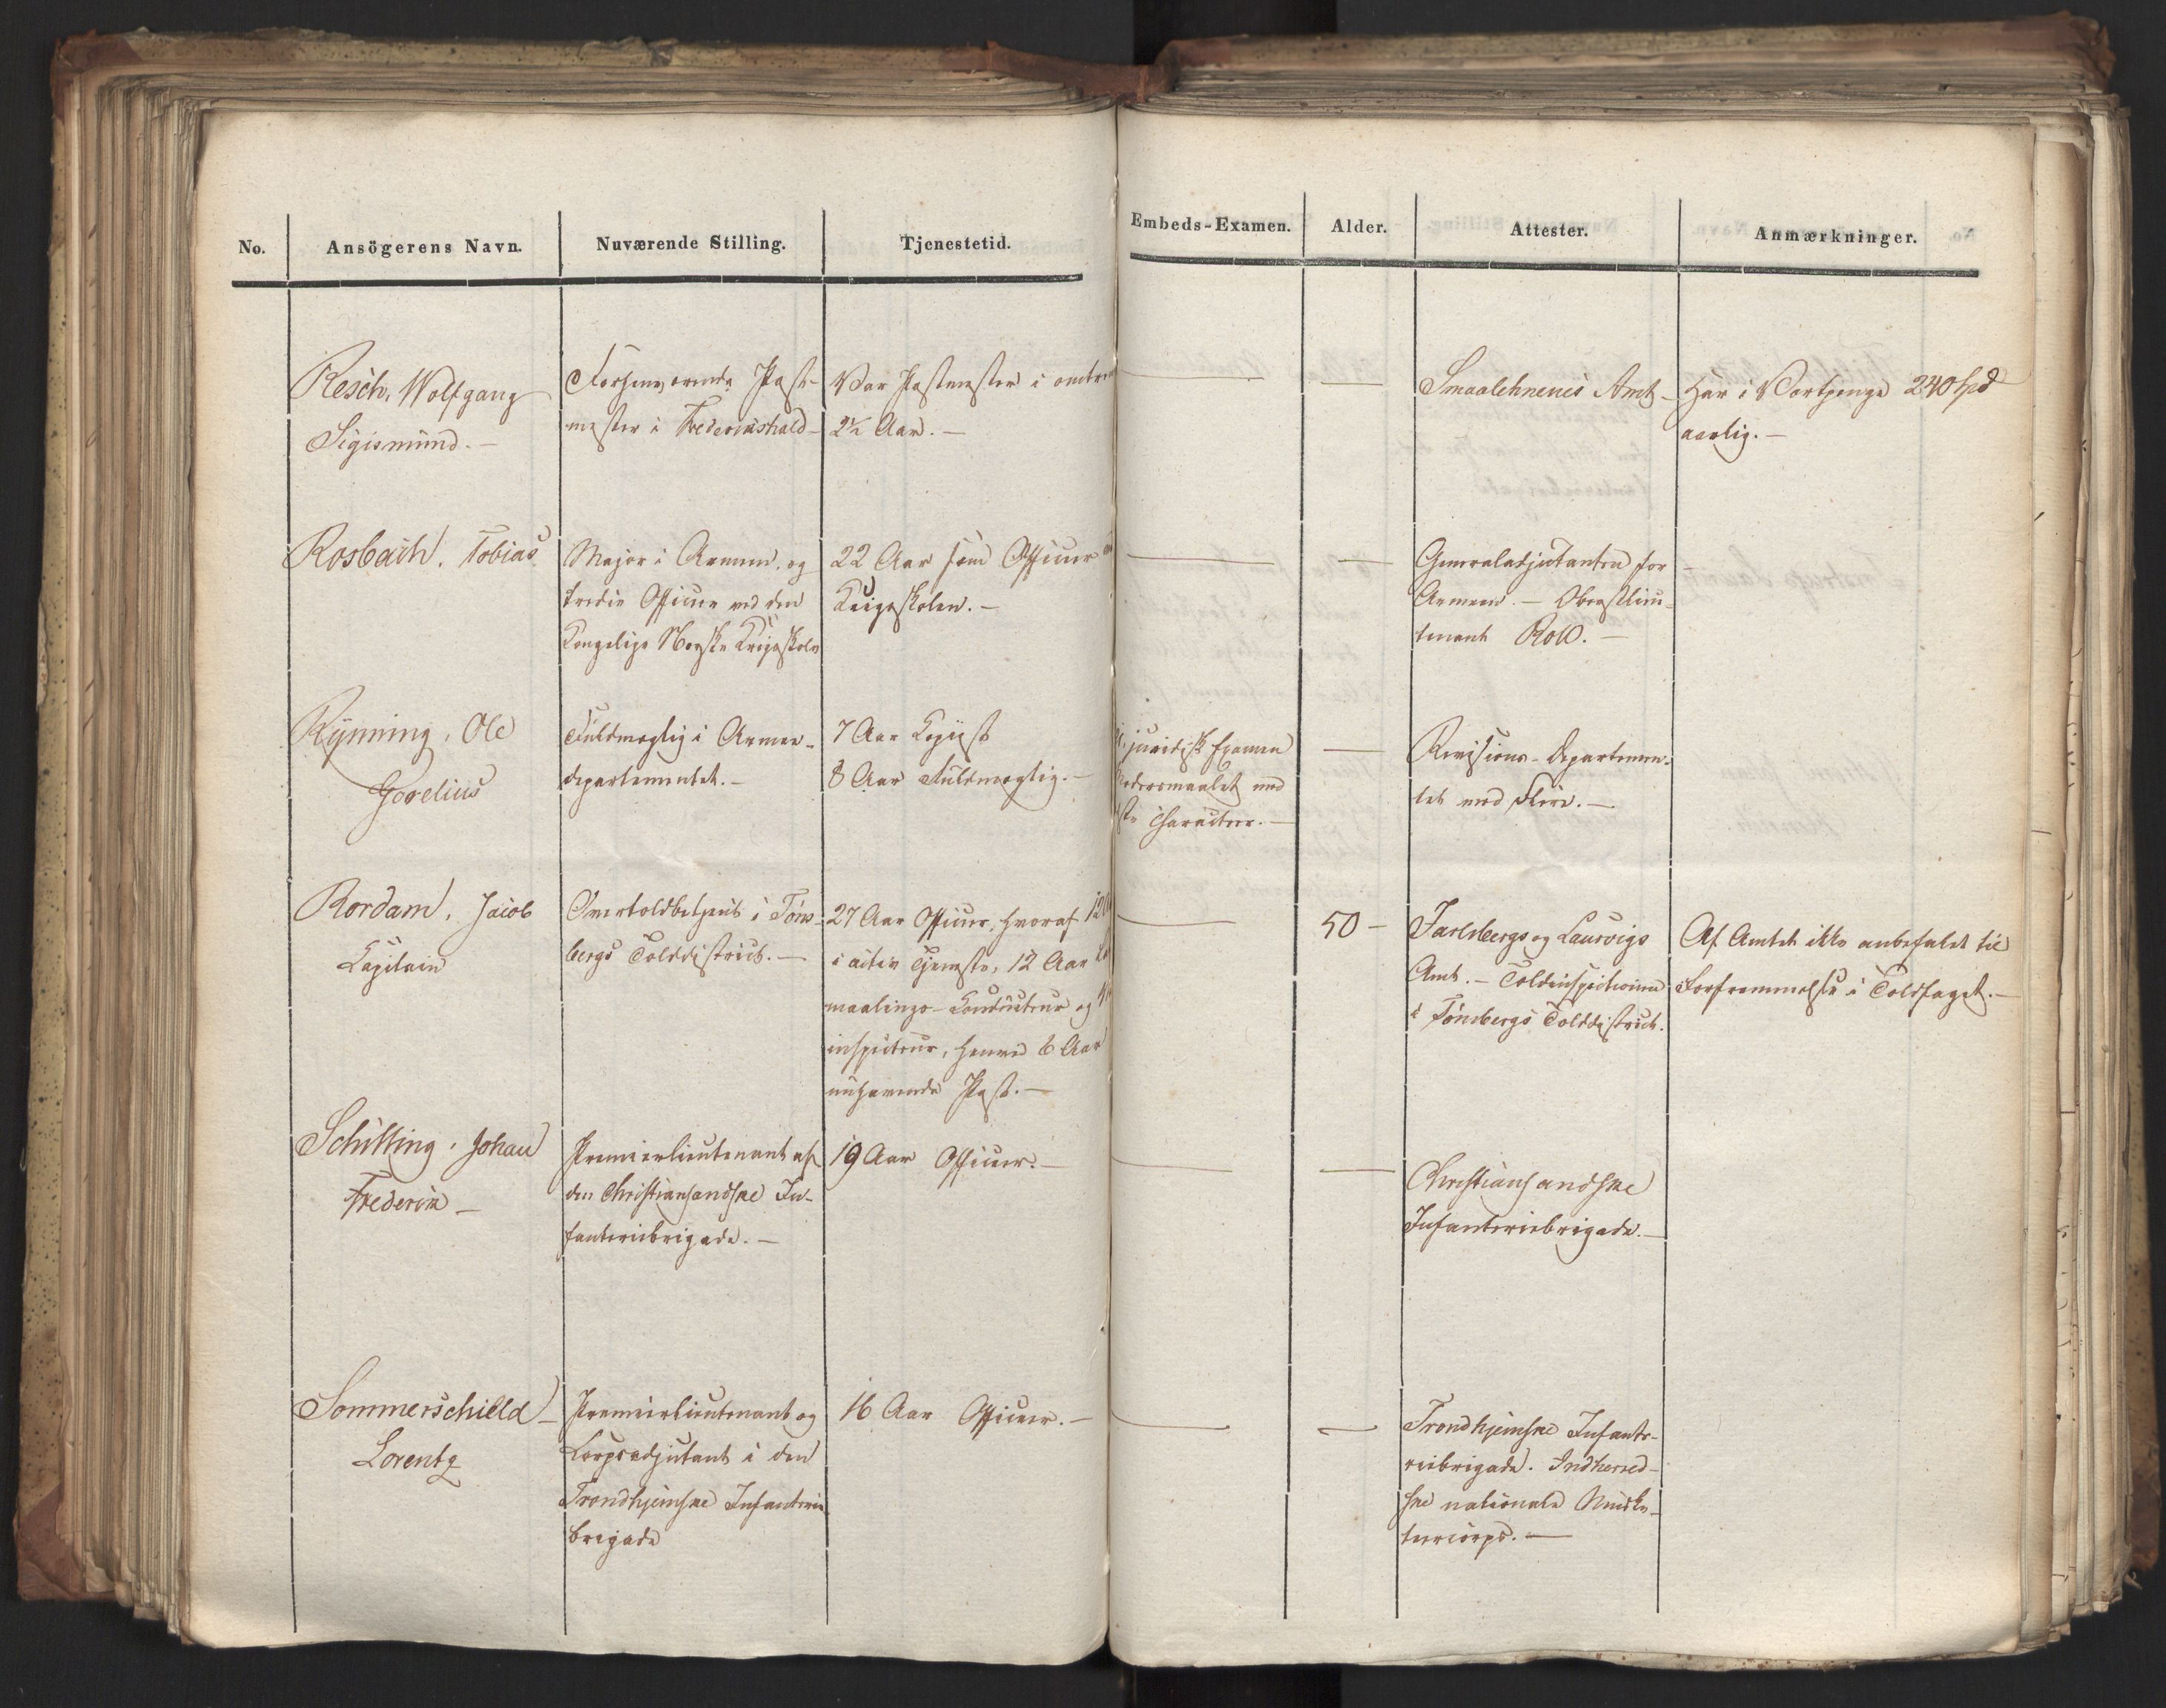 No.
Ansögerens Navn.
Nuværende Stilling.
Tjenestetid.
Embeds-Examen.
Alder.
Attester.
Anmærkninger.
Resch, Wolfgang
Sigismund. —
Forhenværende Post-
mester i Frederikshald —
Var Postmester i omtre
2½ Aar. —
—
—
Smaalehnenes Amt —
Har i Vartpenge 240 Spd
aarlig. —
Rosbach, Tobias
Major i Armeen, og
tredie Officier ved den
Kongelige Norske Krigsskole
22 Aar som Officier
Krigsskolen. —
—
—
Generaladjutanten for
Armeen. — Oberstlieu-
tenant Roll. —
Rynning, Ole
Gorelius
Fuldmægtig i Armee-
departementet. —
7 Aar Copiist
8 Aar Fuldmægtig. —
juridisk Examen
modersmaalet med
ste Characteer. —
—
Revisions-Departemen-
tet med Flere. —
Rordam, Jacob
Capitain
Overtoldbetjent i Töns-
bergs Tolddistrict. —
27 Aar Officier, hvoraf 12
i activ Tjeneste, 12 Aar
maalings-Conducteur og
inspecteur, henved 6 Aar
nuhavende Post. —
—
50 —
Jarlsbergs og Laurvigs
Amt. — Toldinspecteuren
i Tönsbergs Tolddistrict.
Af Amtet ikke anbefalet til
Forfremmelse i Toldfaget. —
Schilling, Johan
Frederik —
Premierlieutenant af
den Christiansandske In-
fanteriebrigade. —
19 Aar Officier. —
—
—
Christiansandske
Infanteriebrigade. —
Sommerschield —
Lorentz
Premierlieutenant og
Corpsadjutant i den
Trondhjemske Infanterie
brigade
16 Aar Officier. —
—
—
Trondhjemske Infante-
riebrigade. Indherred-
ske nationale Muske-
teercorps. —